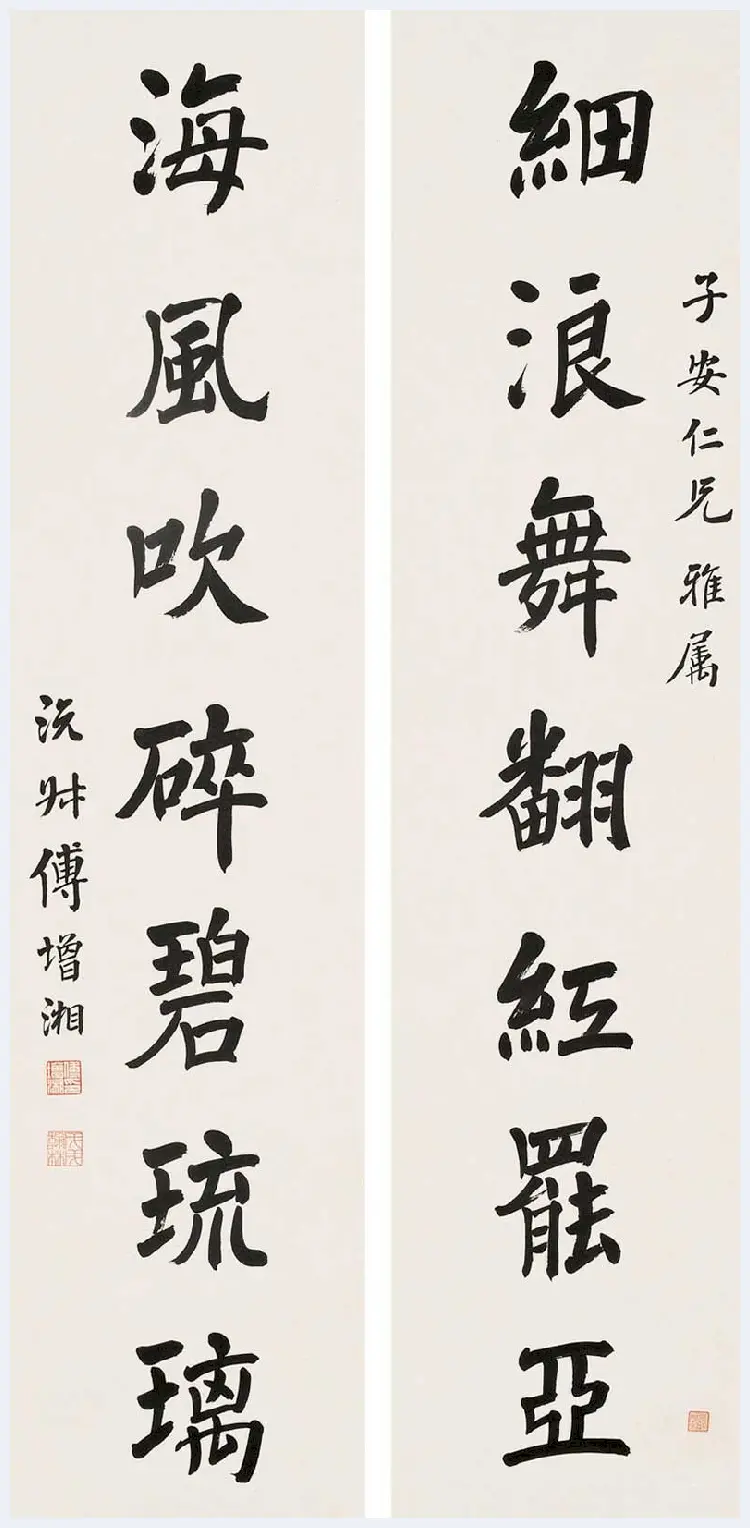 細浪舞翻紅罷亞
子安仁兄雅属
海風吹碎碧琉璃
沅叔傅增湘